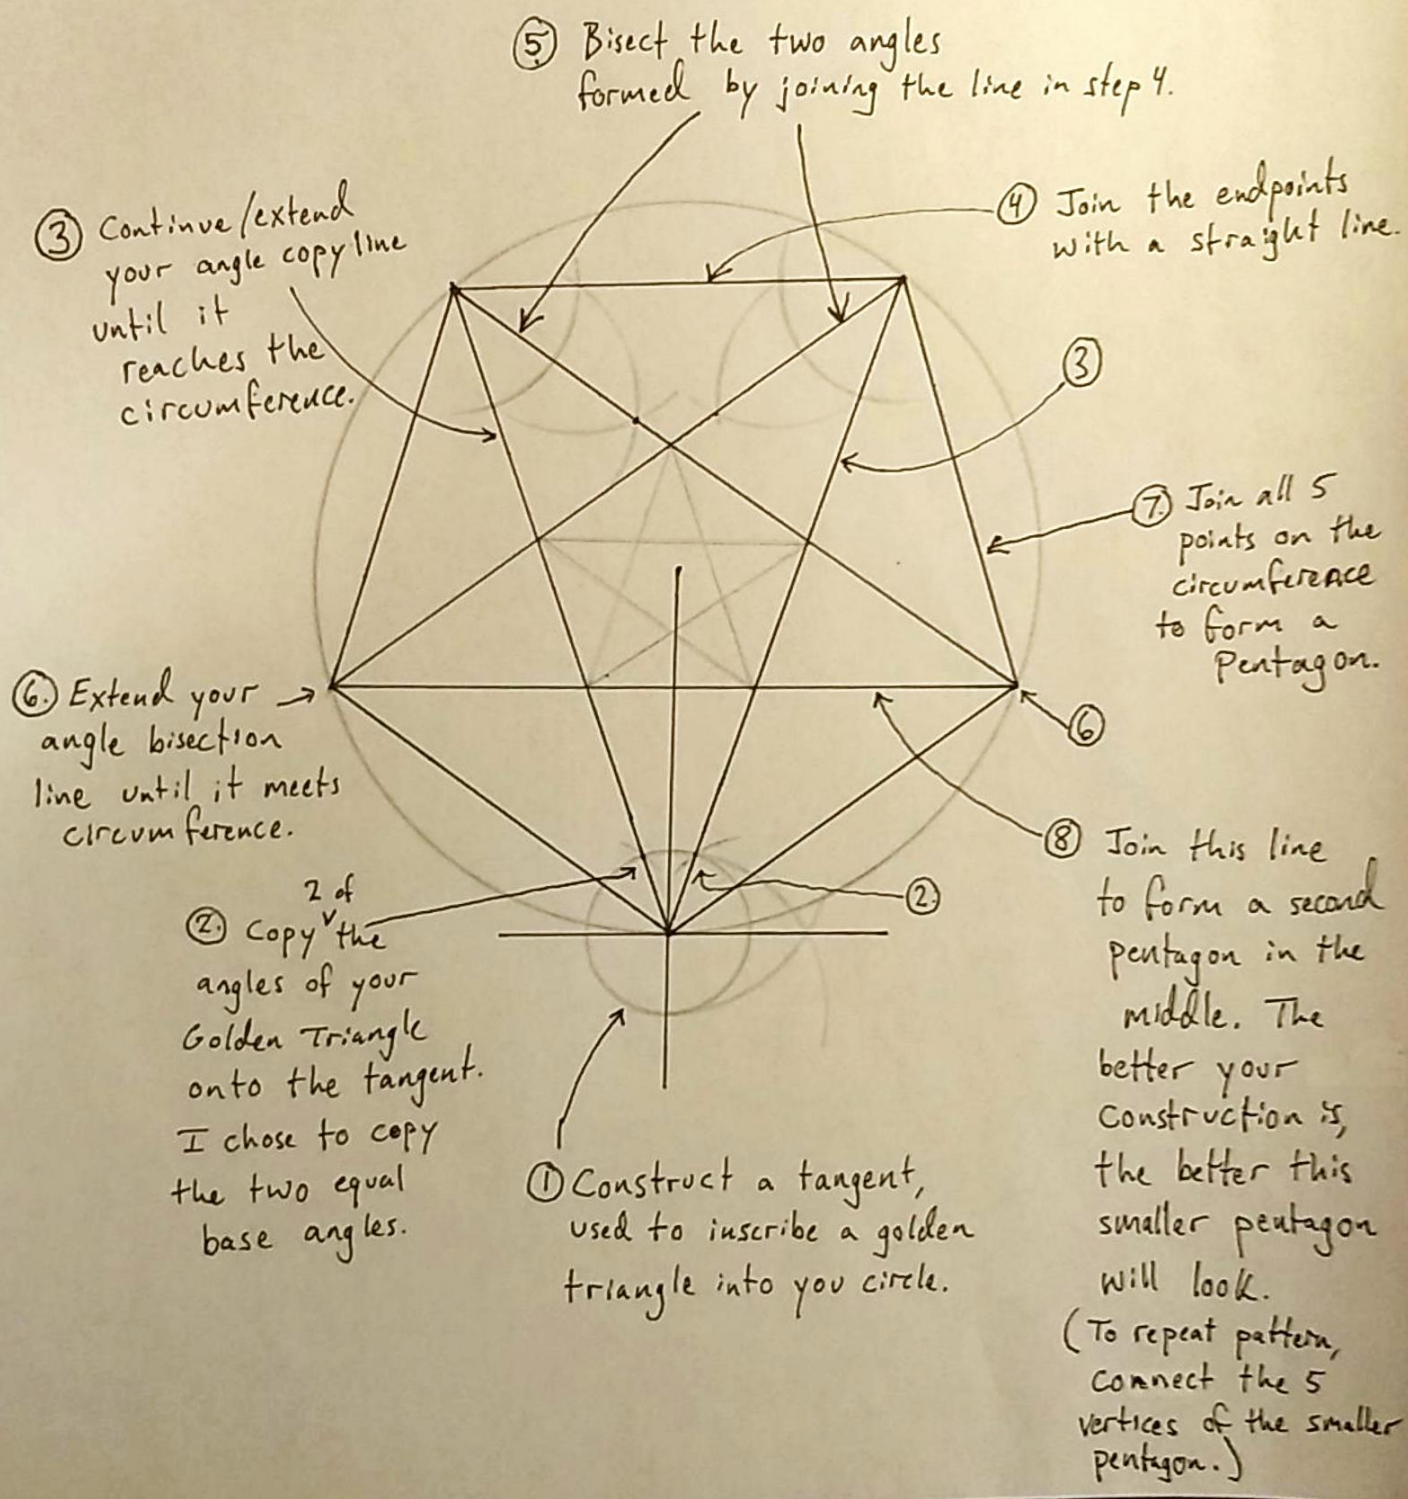 ⑤ Bisect the two angles
formed by joining the line in step 4.
③ Continue/extend
your angle copy line
until it
reaches the
circumference.
④ Join the endpoints
with a straight line.
③
⑦ Join all 5
points on the
circumference
to form a
Pentagon.
⑥ Extend your
angle bisection
line until it meets
circumference.
⑥
⑧ Join this line
to form a second
pentagon in the
middle. The
better your
construction is,
the better this
smaller pentagon
will look.
(To repeat pattern,
connect the 5
vertices of the smaller
pentagon.)
2 of
② Copy ᵛ the
angles of your
Golden Triangle
onto the tangent.
I chose to copy
the two equal
base angles.
②
① Construct a tangent,
used to inscribe a golden
triangle into you circle.